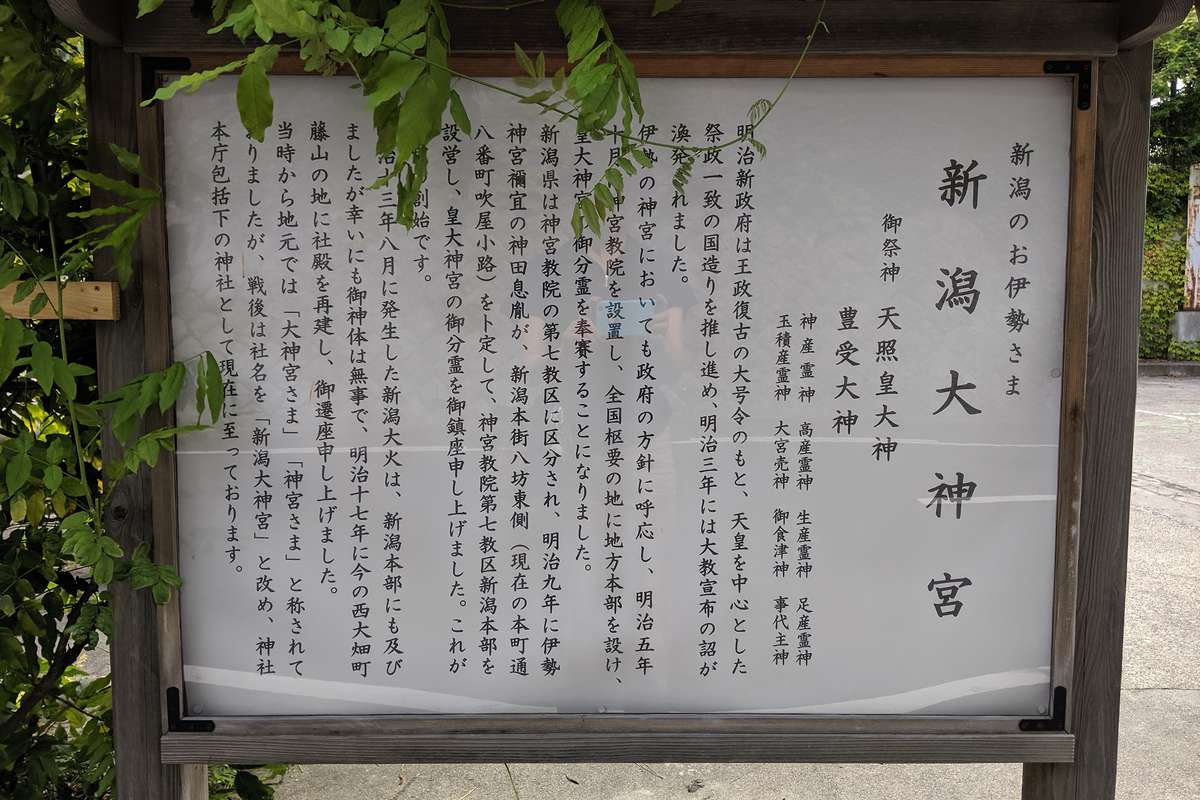 新潟のお伊勢さま
新潟大神宮
御祭神 天照皇大神
豊受大神
神産霊神 高産霊神 生産霊神 足産霊神
玉積産霊神 大宮売神 御食津神 事代主神
明治新政府は王政復古の大号令のもと、天皇を中心とした
祭政一致の国造りを推し進め、明治三年には大教宣布の詔が
渙発されました。
伊勢の神宮においても政府の方針に呼応し、明治五年
十月神宮教院を設置し、全国枢要の地に地方本部を設け、
皇大神宮の御分霊を奉賽することになりました。
新潟県は神宮教院の第七教区に区分され、明治九年に伊勢
神宮禰宜の神田息胤が、新潟本街八坊東側（現在の本町通
八番町吹屋小路）を卜定して、神宮教院第七教区新潟本部を
設営し、皇大神宮の御分霊を御鎮座申し上げました。これが
創始です。
治十三年八月に発生した新潟大火は、新潟本部にも及び
ましたが幸いにも御神体は無事で、明治十七年に今の西大畑町
藤山の地に社殿を再建し、御遷座申し上げました。
当時から地元では「大神宮さま」「神宮さま」と称されて
おりましたが、戦後は社名を「新潟大神宮」と改め、神社
本庁包括下の神社として現在に至っております。